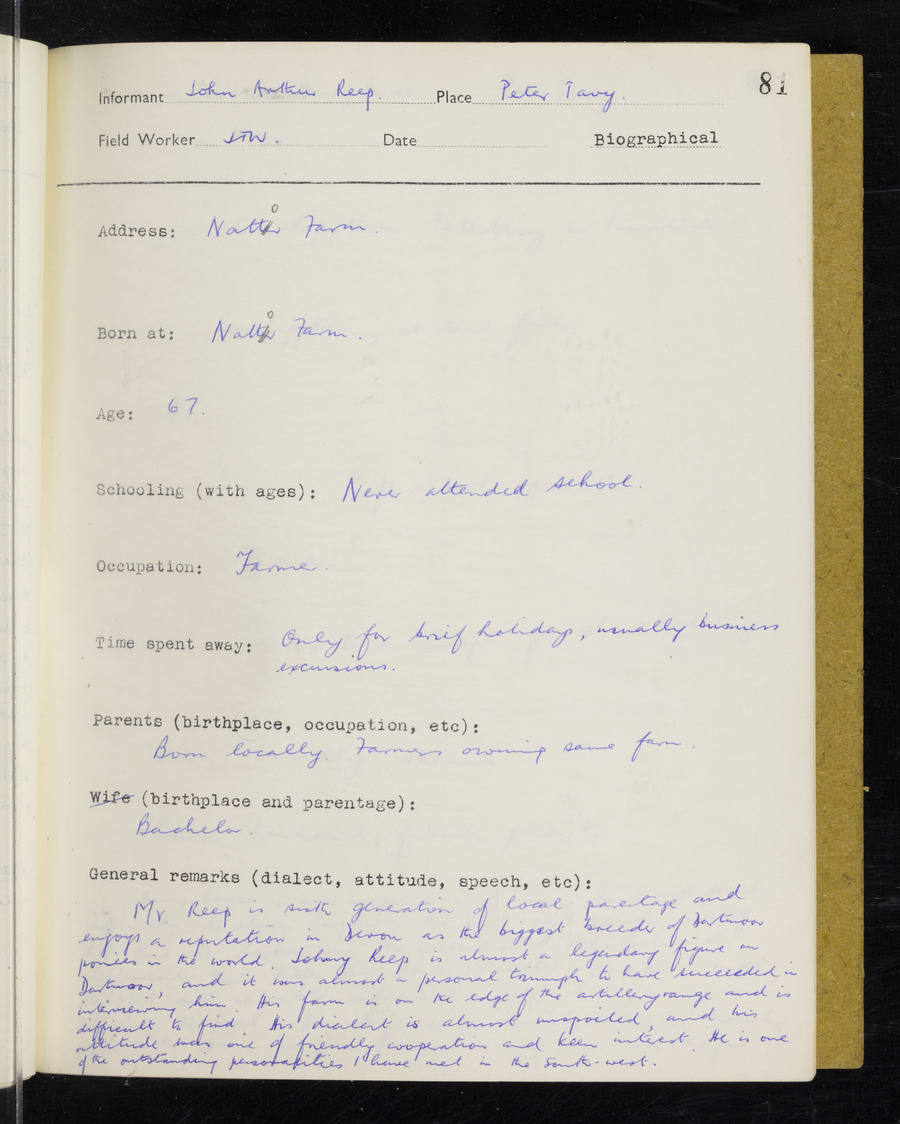 81
Informant John Arthur Reep. Place Peter Tavy.
Field Worker JTW. Date Biographical
Address: Nattor Farm.
Born at: Nattor Farm.
Age: 67.
Schooling (with ages): Never attended school.
Occupation: Farmer.
Time spent away: Only for brief holidays, usually business
excursions.
Parents (birthplace, occupation, etc):
Born locally. Farmers owning same farm.
Wife (birthplace and parentage):
Bachelor.
General remarks (dialect, attitude, speech, etc):
Mr. Reep is sixth generation of local parentage and
enjoys a reputation in Devon as the biggest breeder of Dartmoor
ponies in the world. Johnny Reep is almost a legendary figure on
Dartmoor, and it was almost a personal triumph to have succeeded in
interviewing him. His farm is on the edge of the artillery range and is
difficult to find. His dialect is almost unspoiled, and his
attitude was one of friendly cooperation and keen interest. He is one
of the outstanding personalities I have met in the South-west.